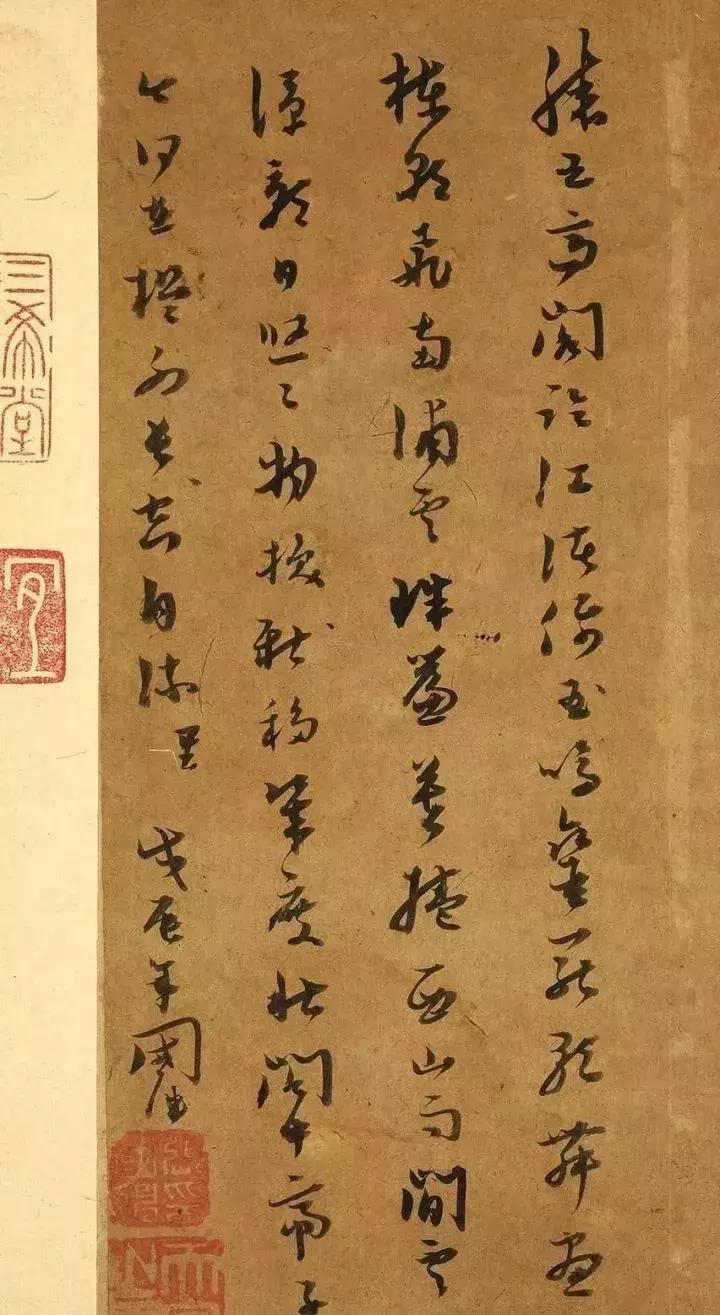 滕王高閣臨江渚佩玉鳴鑾罷歌舞畫
棟朝飛南浦雲珠簾暮捲西山雨閒雲
潭影日悠々物換移幾度秋閣中帝子
今何在檻外長自流
戊辰年
三希堂
宜